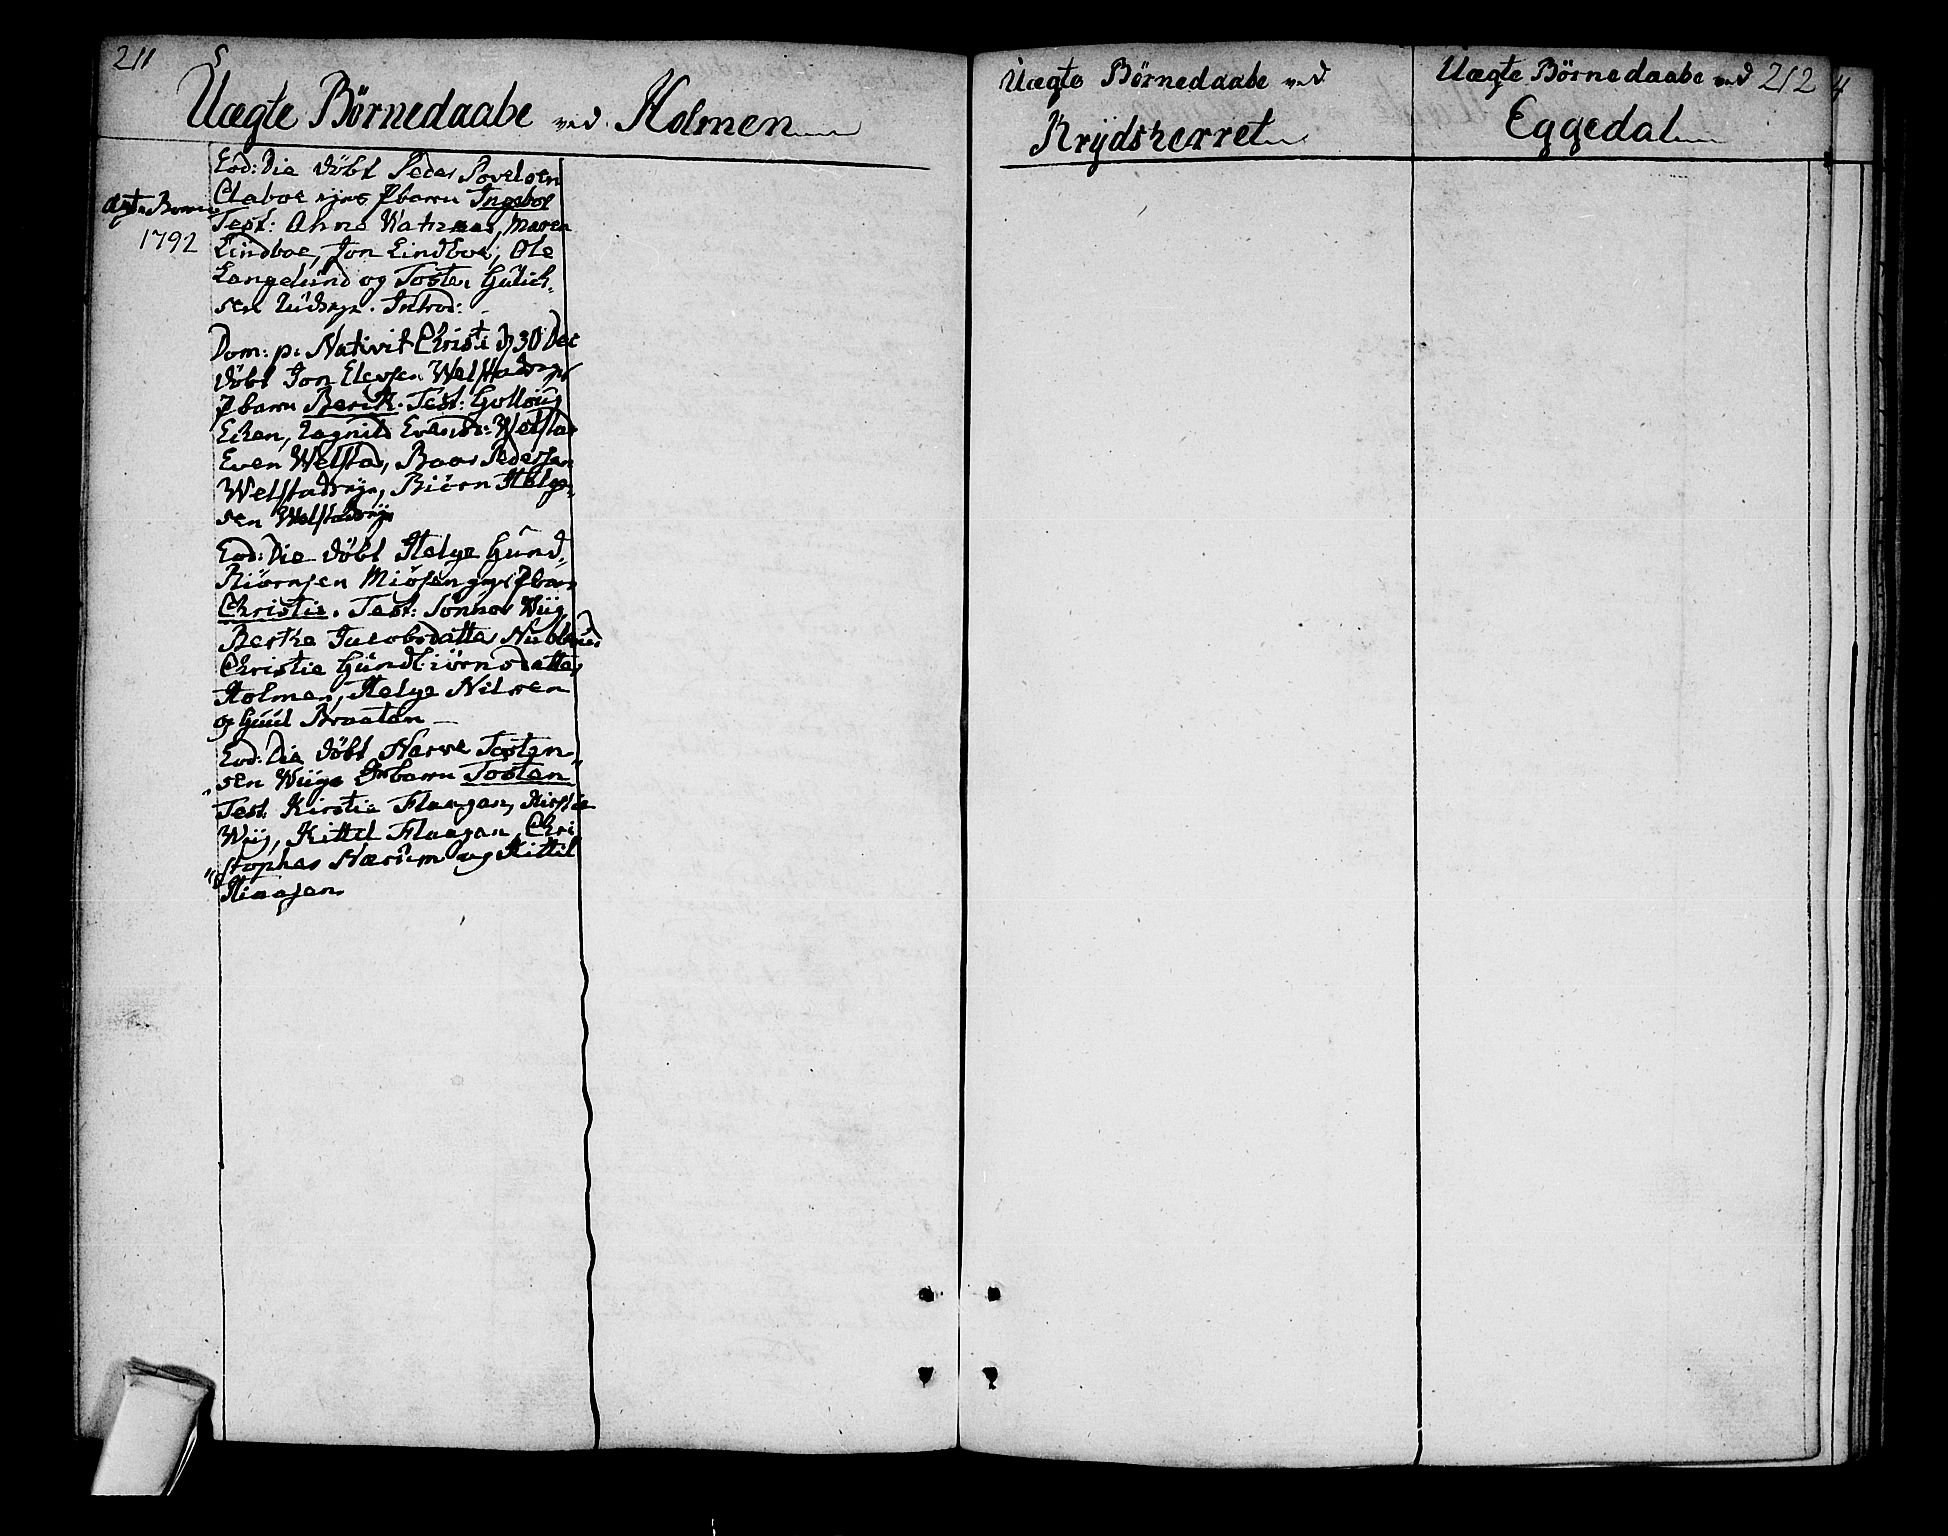 211
Uægte Børnedaabe ved Holmen
ægte Børn
1792
Eod: Die døbt Peder Povelsen
Claboe ejes P barn Ingebor
Test: Anne Maren
Lindboe, Jon Lindboe, Ole
Langelund og Tosten Gulich-
sen Introd:
Dom: p: Nativit Christi d 30 Dec
døbt Jon Elevsen Welstadeje
P barn Berit. Test: Golloug
Eken, Ragnild Evensdr: Welstad
Even Welstad, Baar Pedersen
Welstadeje, Biørn Helge-
sen Welstadeje
Eod: Die døbt Helge Gund-
Biørnsen Miøsen P barn
Christie. Test: Sønnov Wiig
Berthe Jacobsdatter Nubberud
Christie Gundbiørnsdatter
Holmen, Helge Nilsen
og Guul Braaten
Eod: Die døbt Narve Tosten-
sen Wiige Drbarn Tosten
Test: Kirstie Flaagan, Kirstie
Wiig, Kittil Flaagan, Chri
stopher Nærum og Kittil
Uægte Børnedaabe ved
Krydsherret
Uægte Børnedaabe ved 212
Eggedal